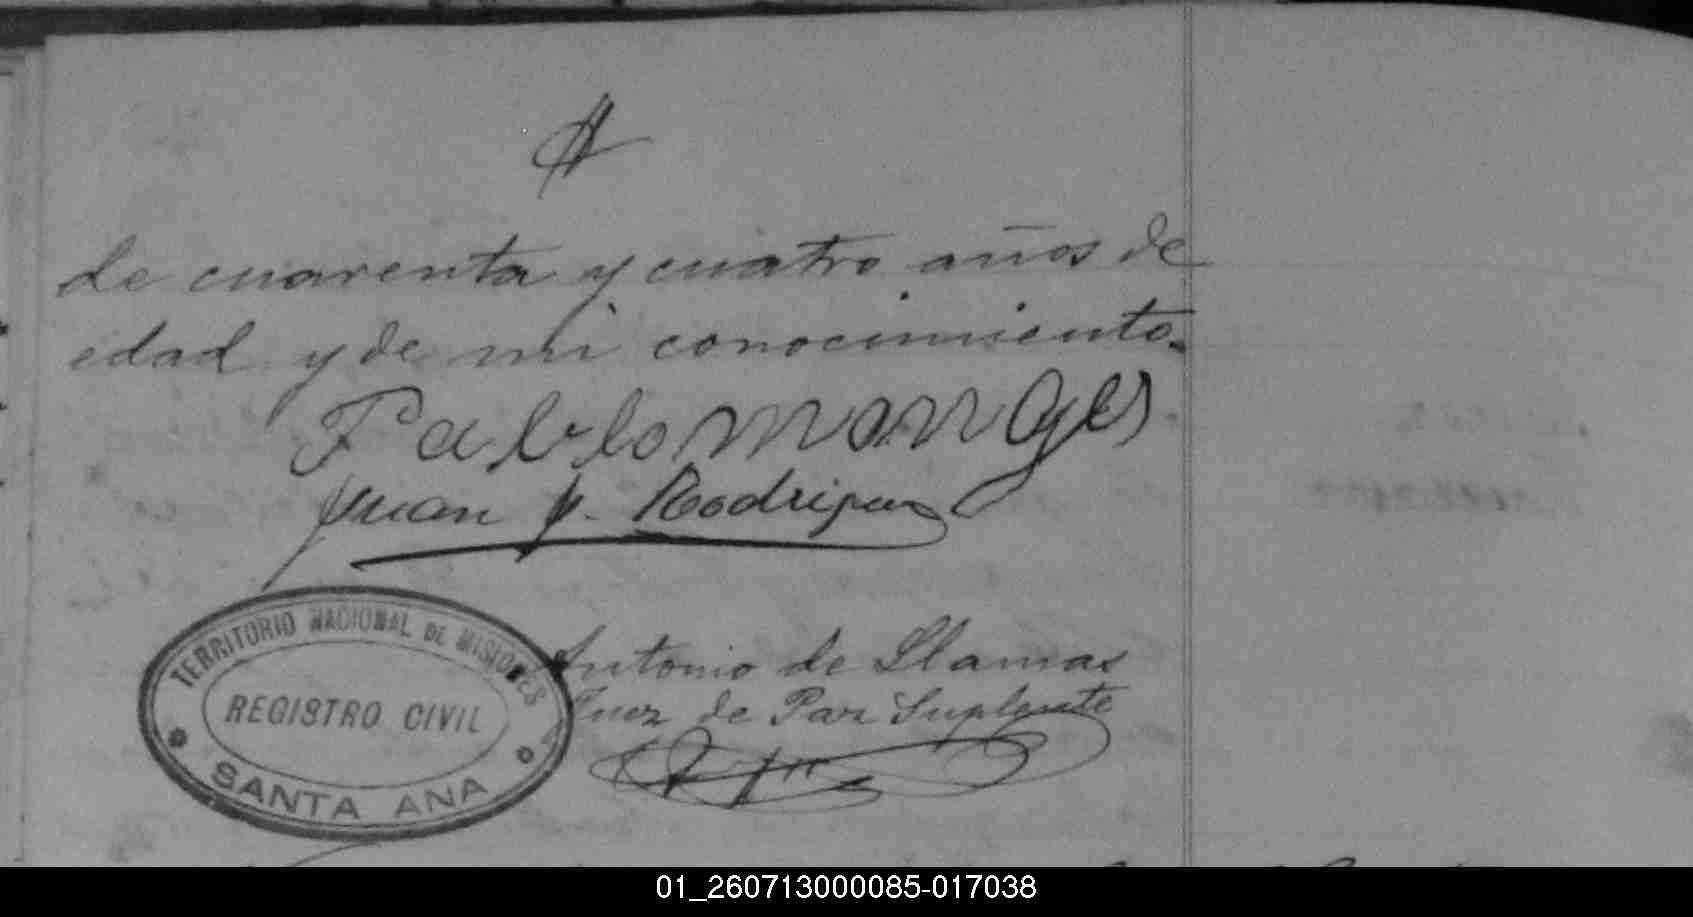 de cuarenta y cuatro años de
edad y de mi conocimiento.
Pablo
Juan P. Rodriguez
TERRITORIO NACIONAL DE MISIONES
REGISTRO CIVIL
SANTA ANA
Antonio de Llamas
Juez de Paz Suplente
01_260713000085-017038